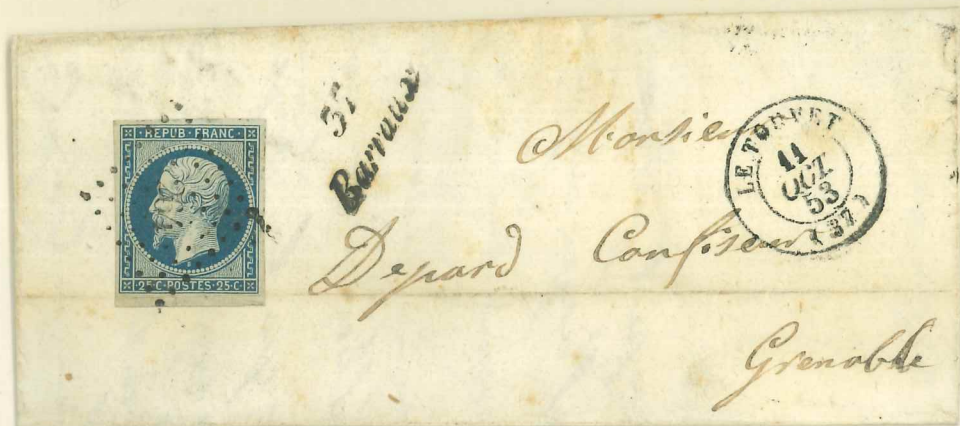 REPUB·FRANC·
25·C·POSTES·25·C·
37
Barraux
LE TOUVET
11
OCT
53
(37)
Monsieur
Depard Confiseur
Grenoble